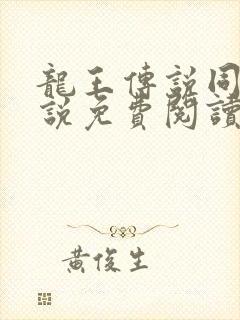 龍王傳說同
說免費閱讀
黃俊生